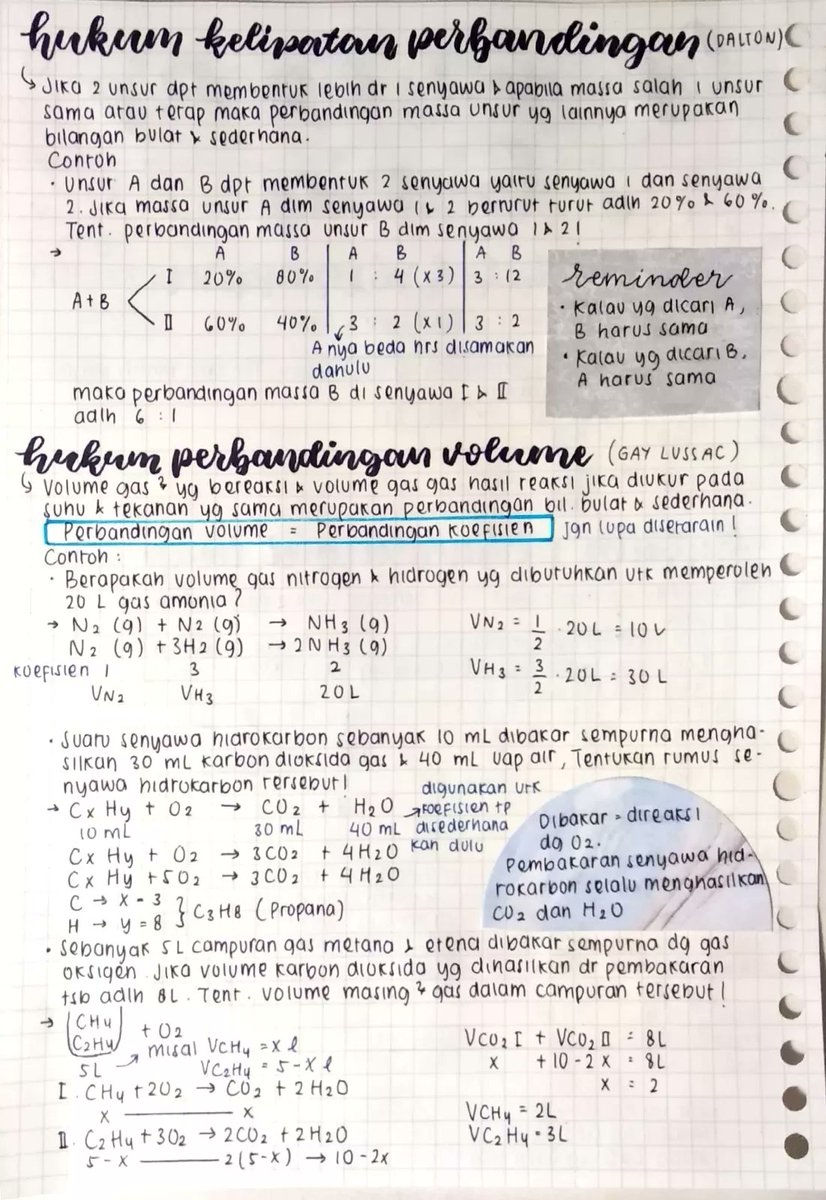 hukum kelipatan perbandingan (DALTON)
↳ Jika 2 unsur dpt membentuk lebih dr 1 senyawa & apabila massa salah 1 unsur
sama atau tetap maka perbandingan massa unsur yg lainnya merupakan
bilangan bulat & sederhana.
Contoh
· Unsur A dan B dpt membentuk 2 senyawa yaitu senyawa 1 dan senyawa
2. Jika massa unsur A dlm senyawa 1 & 2 berturut turut adlh 20% & 60%.
Tent. perbandingan massa unsur B dlm senyawa 1 & 2!
→ A B A B A B
I 20% 80% 1 : 4 (x3) 3 : 12
A+B
II 60% 40% 3 : 2 (x1) 3 : 2
A nya beda hrs disamakan
dahulu
maka perbandingan massa B di senyawa I & II
adlh 6 : 1
reminder
• Kalau yg dicari A,
B harus sama
• Kalau yg dicari B,
A harus sama
hukum perbandingan volume (GAY LUSSAC)
↳ Volume gas² yg bereaksi & volume gas gas hasil reaksi jika diukur pada
suhu & tekanan yg sama merupakan perbandingan bil. bulat & sederhana.
Perbandingan Volume = Perbandingan Koefisien jgn lupa disetarain!
Contoh :
· Berapakah volume gas nitrogen & hidrogen yg dibutuhkan utk memperoleh
20 L gas amonia?
→ N2 (g) + N2 (g) → NH3 (g)
N2 (g) + 3H2 (g) → 2NH3 (g)
koefisien 1 3 2
VN2 VH3 20L
VN2 = 1/2 · 20L = 10L
VH3 = 3/2 · 20L = 30L
· Suatu senyawa hidrokarbon sebanyak 10 mL dibakar sempurna mengha-
silkan 30 mL karbon dioksida gas & 40 mL uap air, Tentukan rumus se-
nyawa hidrokarbon tersebut!
→ CxHy + O2 → CO2 + H2O
10 mL 30 mL 40 mL
digunakan utk
→ koefisien tp
disederhana
kan dulu
CxHy + O2 → 3CO2 + 4H2O
CxHy + 5O2 → 3CO2 + 4H2O
C → x = 3
H → y = 8 } C3H8 (Propana)
Dibakar = direaksi
dg O2.
Pembakaran senyawa hid-
rokarbon selalu menghasilkan
CO2 dan H2O
· Sebanyak 5L campuran gas metana & etena dibakar sempurna dg gas
oksigen. Jika volume karbon dioksida yg dihasilkan dr pembakaran
tsb adlh 8L. Tent. volume masing² gas dalam campuran tersebut!
→ CH4
C2H4 + O2
5L → misal VCH4 = x l
VC2H4 = 5-x l
I. CH4 + 2O2 → CO2 + 2H2O
x ——— x
II. C2H4 + 3O2 → 2CO2 + 2H2O
5-x ——— 2(5-x) → 10-2x
VCO2 I + VCO2 II = 8L
x + 10-2x = 8L
x = 2
VCH4 = 2L
VC2H4 = 3L